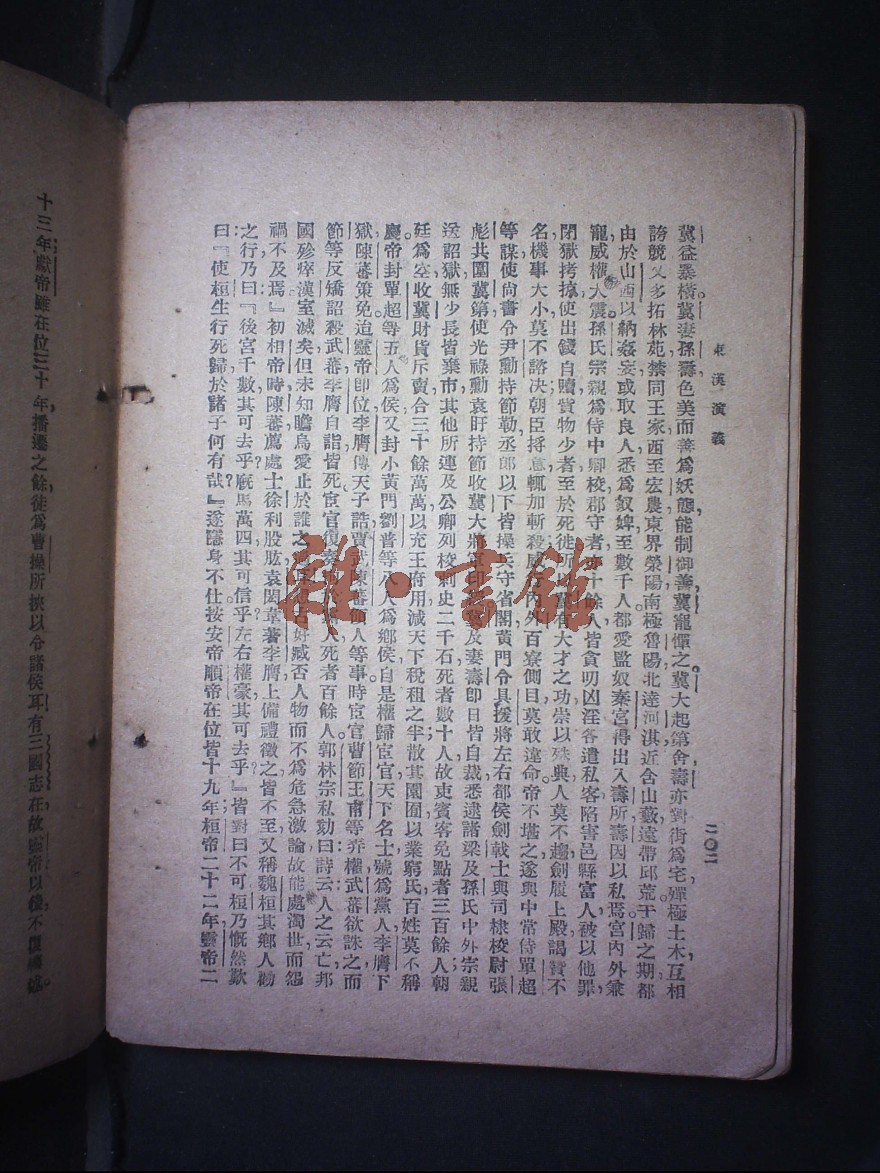 東漢演義
二〇二
冀益暴橫。冀妻孫壽色美而善爲妖態，能制御善冀，寵憚之。冀大起第舍，壽亦對街爲宅，殫極土木，互相
誇競。又多拓林苑，禁同王家，西至宏農，東界滎陽，南極魯陽，北達河淇，近含山藪，遠帶邱荒。于歸之期，都
由於山西以納姦妄，或取良人悉爲奴婢至數千人。都愛監奴秦宮得出入壽所，壽因以私焉。宮內外兼
寵，威權大震。孫氏宗親爲侍中卿校郡守者亦十餘人，皆貪叨凶淫，各遣私客陷害邑縣富人，被以他罪，
閉獄拷掠，使出錢自贖，貲物少者至於死徙。所 冀有大才之功，崇以殊典，人莫不趨，劍履上殿，謁贊不
名，機事大小莫不諮決，朝臣捋意，輒加斬殺，威行內外，百寮側目，莫敢違命，帝不堪之，遂與中常侍單超
等謀，使尚書令尹勳持節勒丞郎以下，皆操兵守省閣，黃門令具援將左右都侯劍戟士與司棣校尉張
彪共圍冀第，使光祿勳袁盱持節收冀大將軍印 及妻壽卽日皆自裁，悉逮諸梁及孫氏中外宗親
送詔獄，無少長皆棄市，其他所連及公卿列校剌史二千石死者數十人，故吏賓客免黜者三百餘人，朝
廷爲空，收冀財貨斥賣合三十餘萬萬，以充王府，用減天下稅租之半，散其園囿以業窮民，百姓莫不稱
慶。帝封單超等五人爲侯，又封小黃門劉普等八人爲鄉侯，自是權歸宦官，天下名士號爲黨人，李膺下
獄，陳蕃策免，迨靈帝卽位，李膺傳天子誥，賈武陳蕃 人等事，時宦官曹節王甫等弄權，武蕃欲誅之，而
節等反矯詔殺武蕃，李膺自詣皆死。宦官復奏 人死者百餘人。郭林宗私勤曰：詩云人之云亡，邦
國殄瘁，漢室滅矣，但未知瞻烏爰止，於誰之 好臧否人物，而不爲危急激論，故能處濁世而怨
禍不及焉。』初相帝時，陳蕃薦處士徐利股肱袁閎韋著李膺上備禮徵之，皆不至，又稱魏桓，其鄉人勸
之行，乃曰：『後宮千數，其可去乎？厩馬萬四，其可信乎？左右權豪，其可去乎？』皆對曰不可，桓乃慨然歎
曰：『使桓生行死歸，於諸子何有哉？』遂隱身不仕。按安帝順帝在位皆十九年，桓帝二十二年，靈帝二
十三年，獻帝雖在位三十年，播遷之餘，徒爲曹操所挾以令諸侯耳，有三國志在，故靈帝以後不復